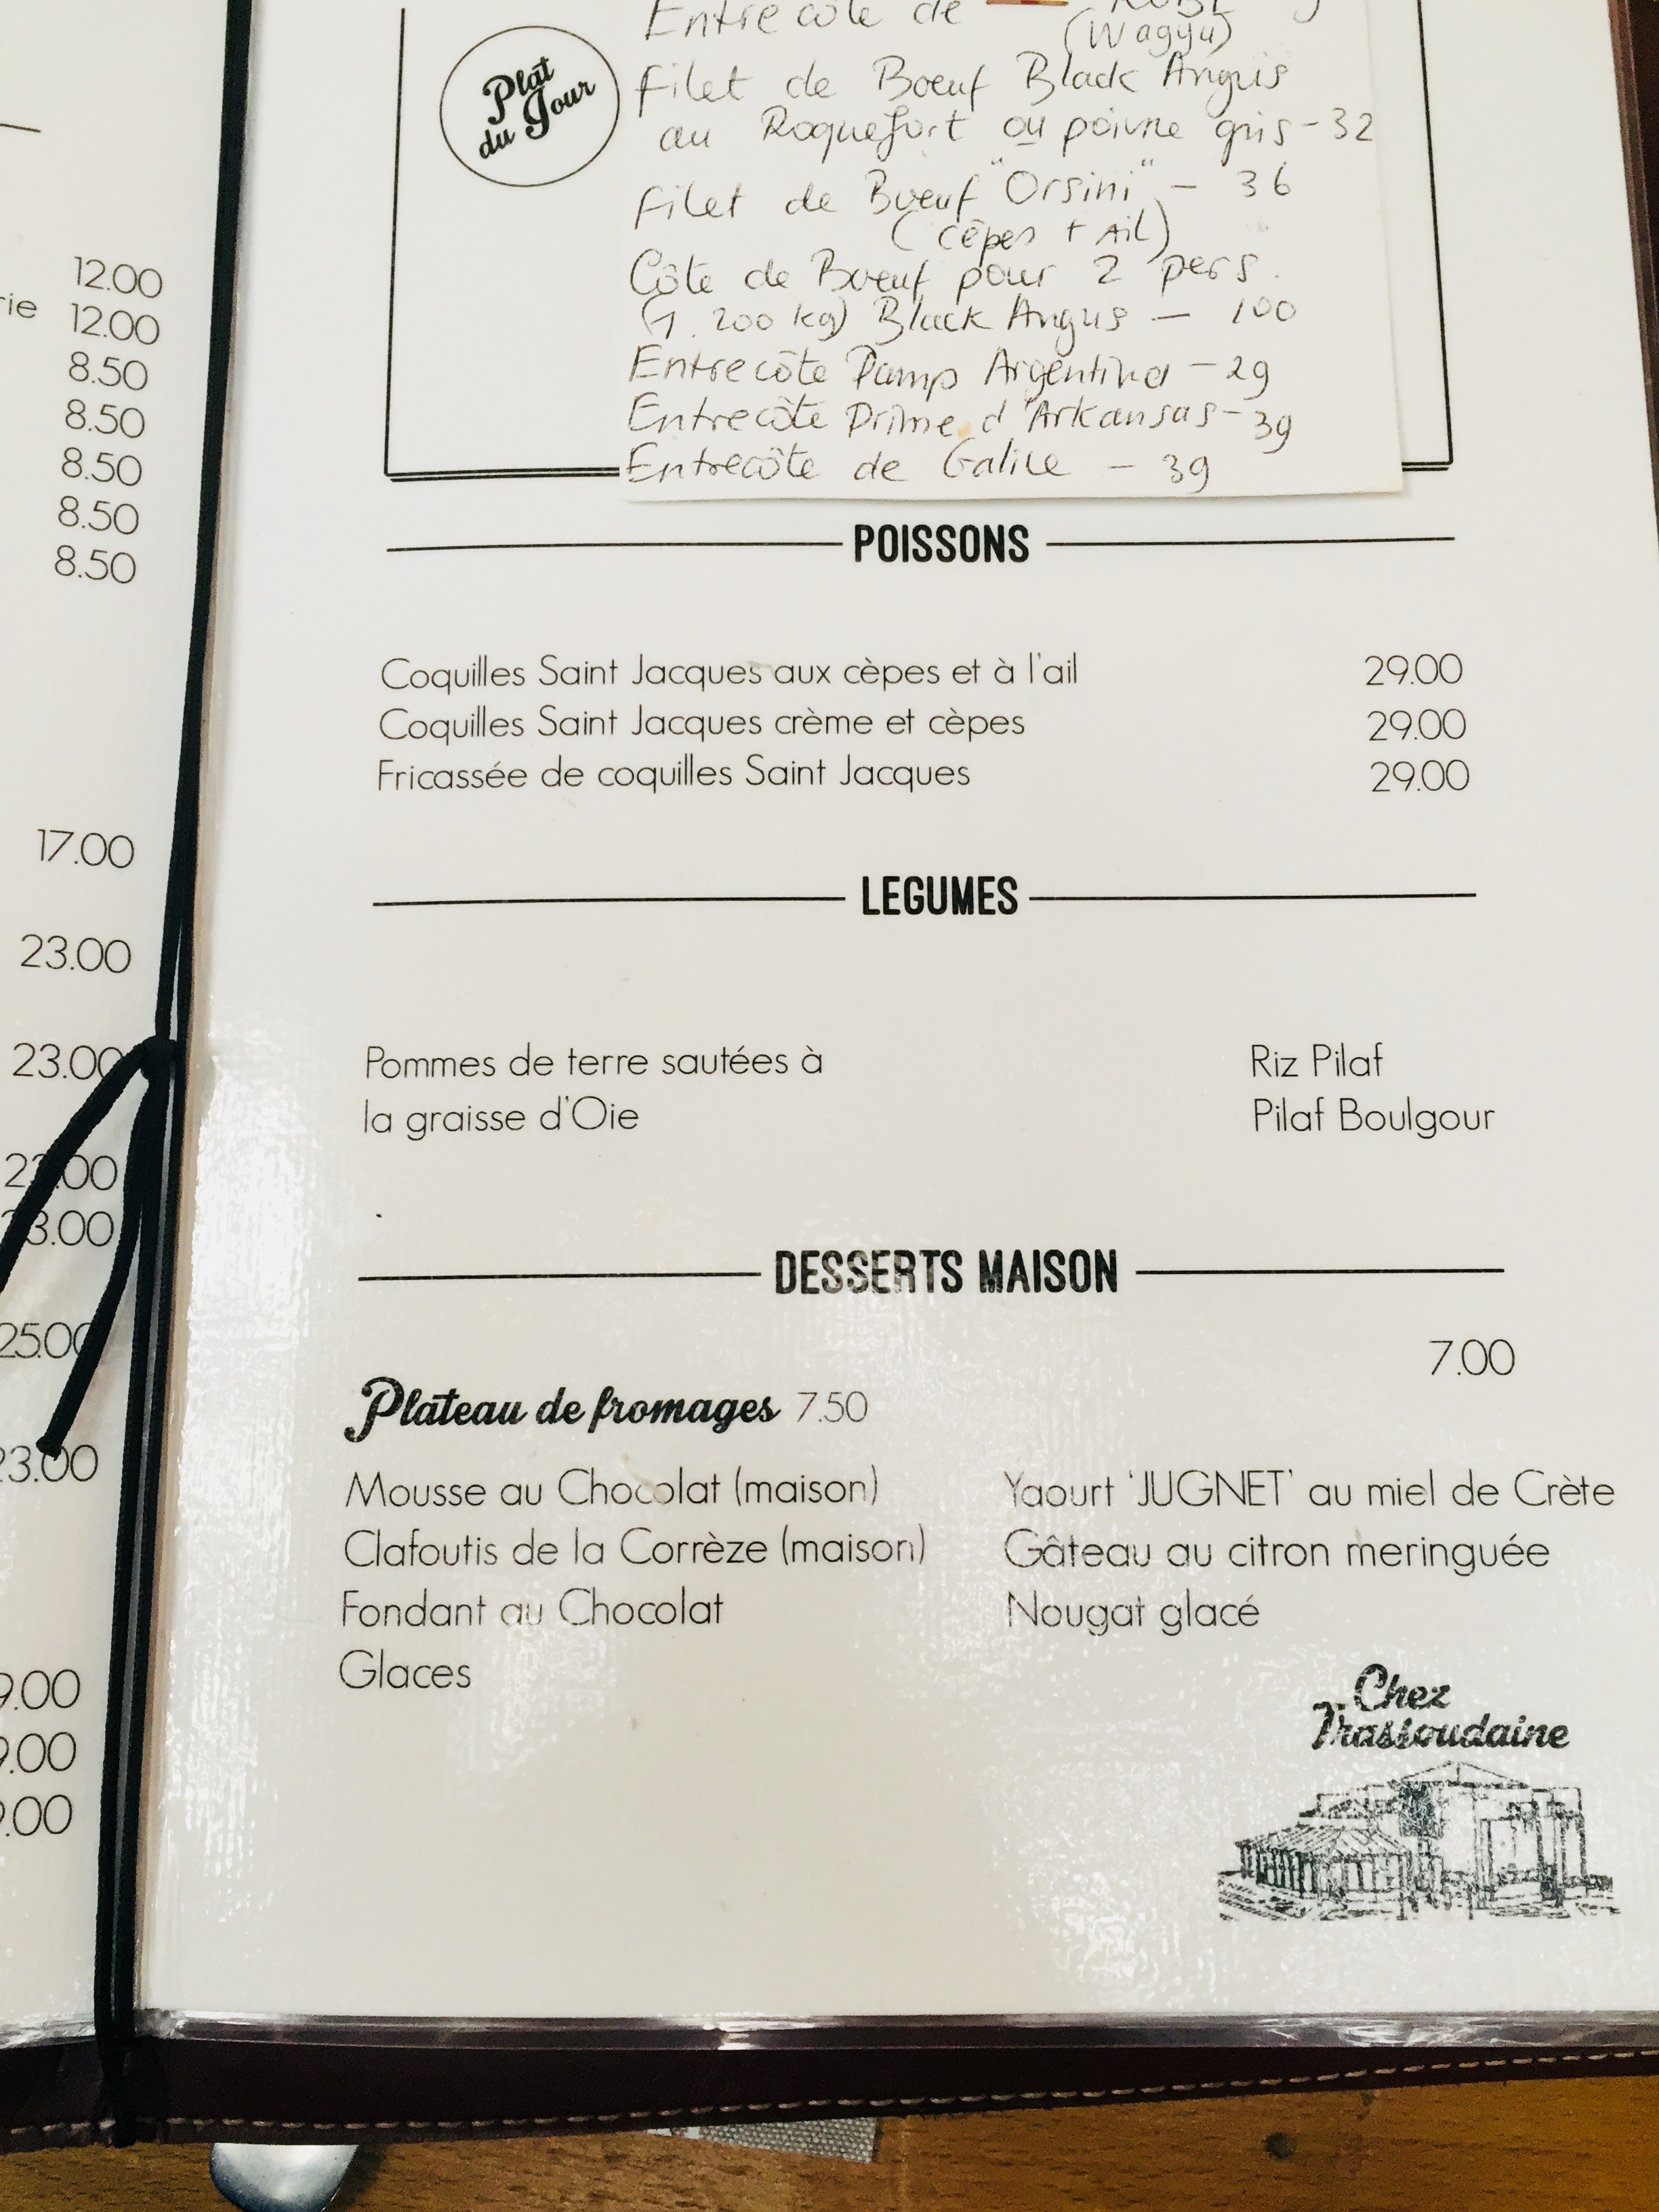 12.00
rie 12.00
8.50
8.50
8.50
8.50
8.50
17.00
23.00
23.00
23.00
25.00
23.00
9.00
9.00
9.00
Plat
du Jour
Entrecôte de
(Wagyu)
Filet de Boeuf Black Angus
au Roquefort ou poivre gris - 32
Filet de Boeuf "Orsini" - 36
(cêpes + Ail)
Côte de Boeuf pour 2 pers.
(1.200 kg) Black Angus - 100
Entrecôte Pamp Argentina - 29
Entrecôte Prime d'Arkansas - 39
Entrecôte de Galice - 39
POISSONS
Coquilles Saint Jacques aux cèpes et à l'ail 29.00
Coquilles Saint Jacques crème et cèpes 29.00
Fricassée de coquilles Saint Jacques 29.00
LEGUMES
Pommes de terre sautées à
la graisse d'Oie
Riz Pilaf
Pilaf Boulgour
DESSERTS MAISON
7.00
Plateau de fromages 7.50
Mousse au Chocolat (maison)
Clafoutis de la Corrèze (maison)
Fondant au Chocolat
Glaces
Yaourt 'JUGNET' au miel de Crète
Gâteau au citron meringuée
Nougat glacé
Chez
Trassoudaine